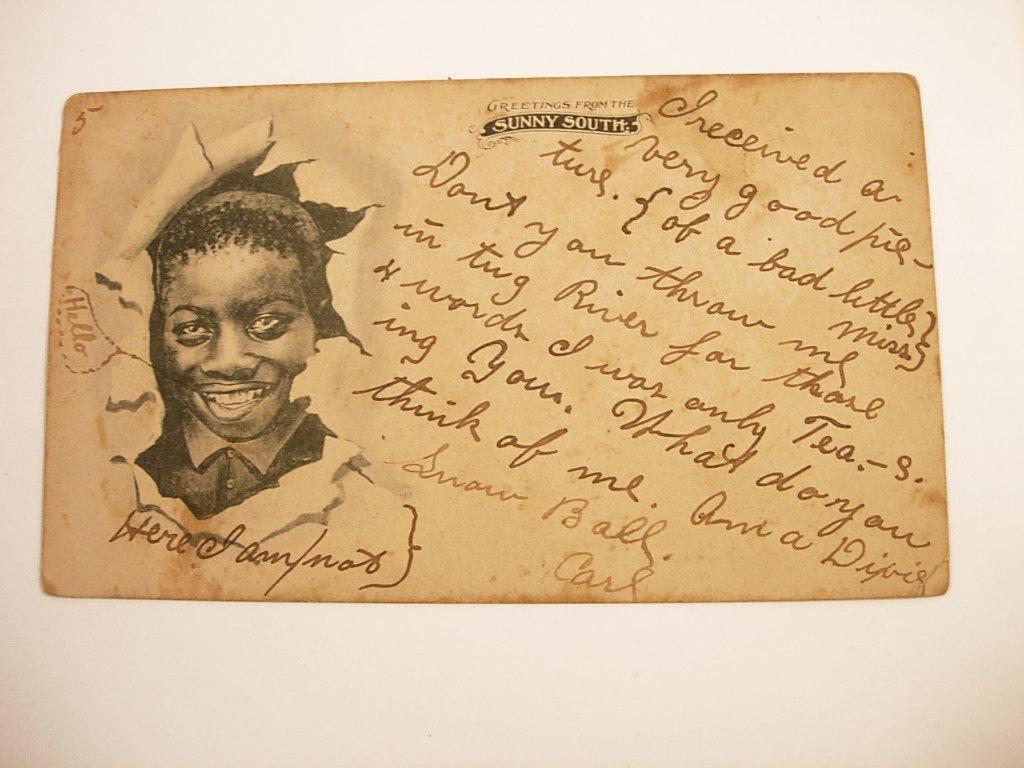 5
GREETINGS FROM THE
SUNNY SOUTH.
I received a
very good pic-
ture. { of a bad little }
miss }
Dont you throw me
in tug River for those
4 words I was only Tea.-s.
ing You. What do you
think of me. Am a Dixie
Snow Ball.
Carl
Hello
Here I am/not }